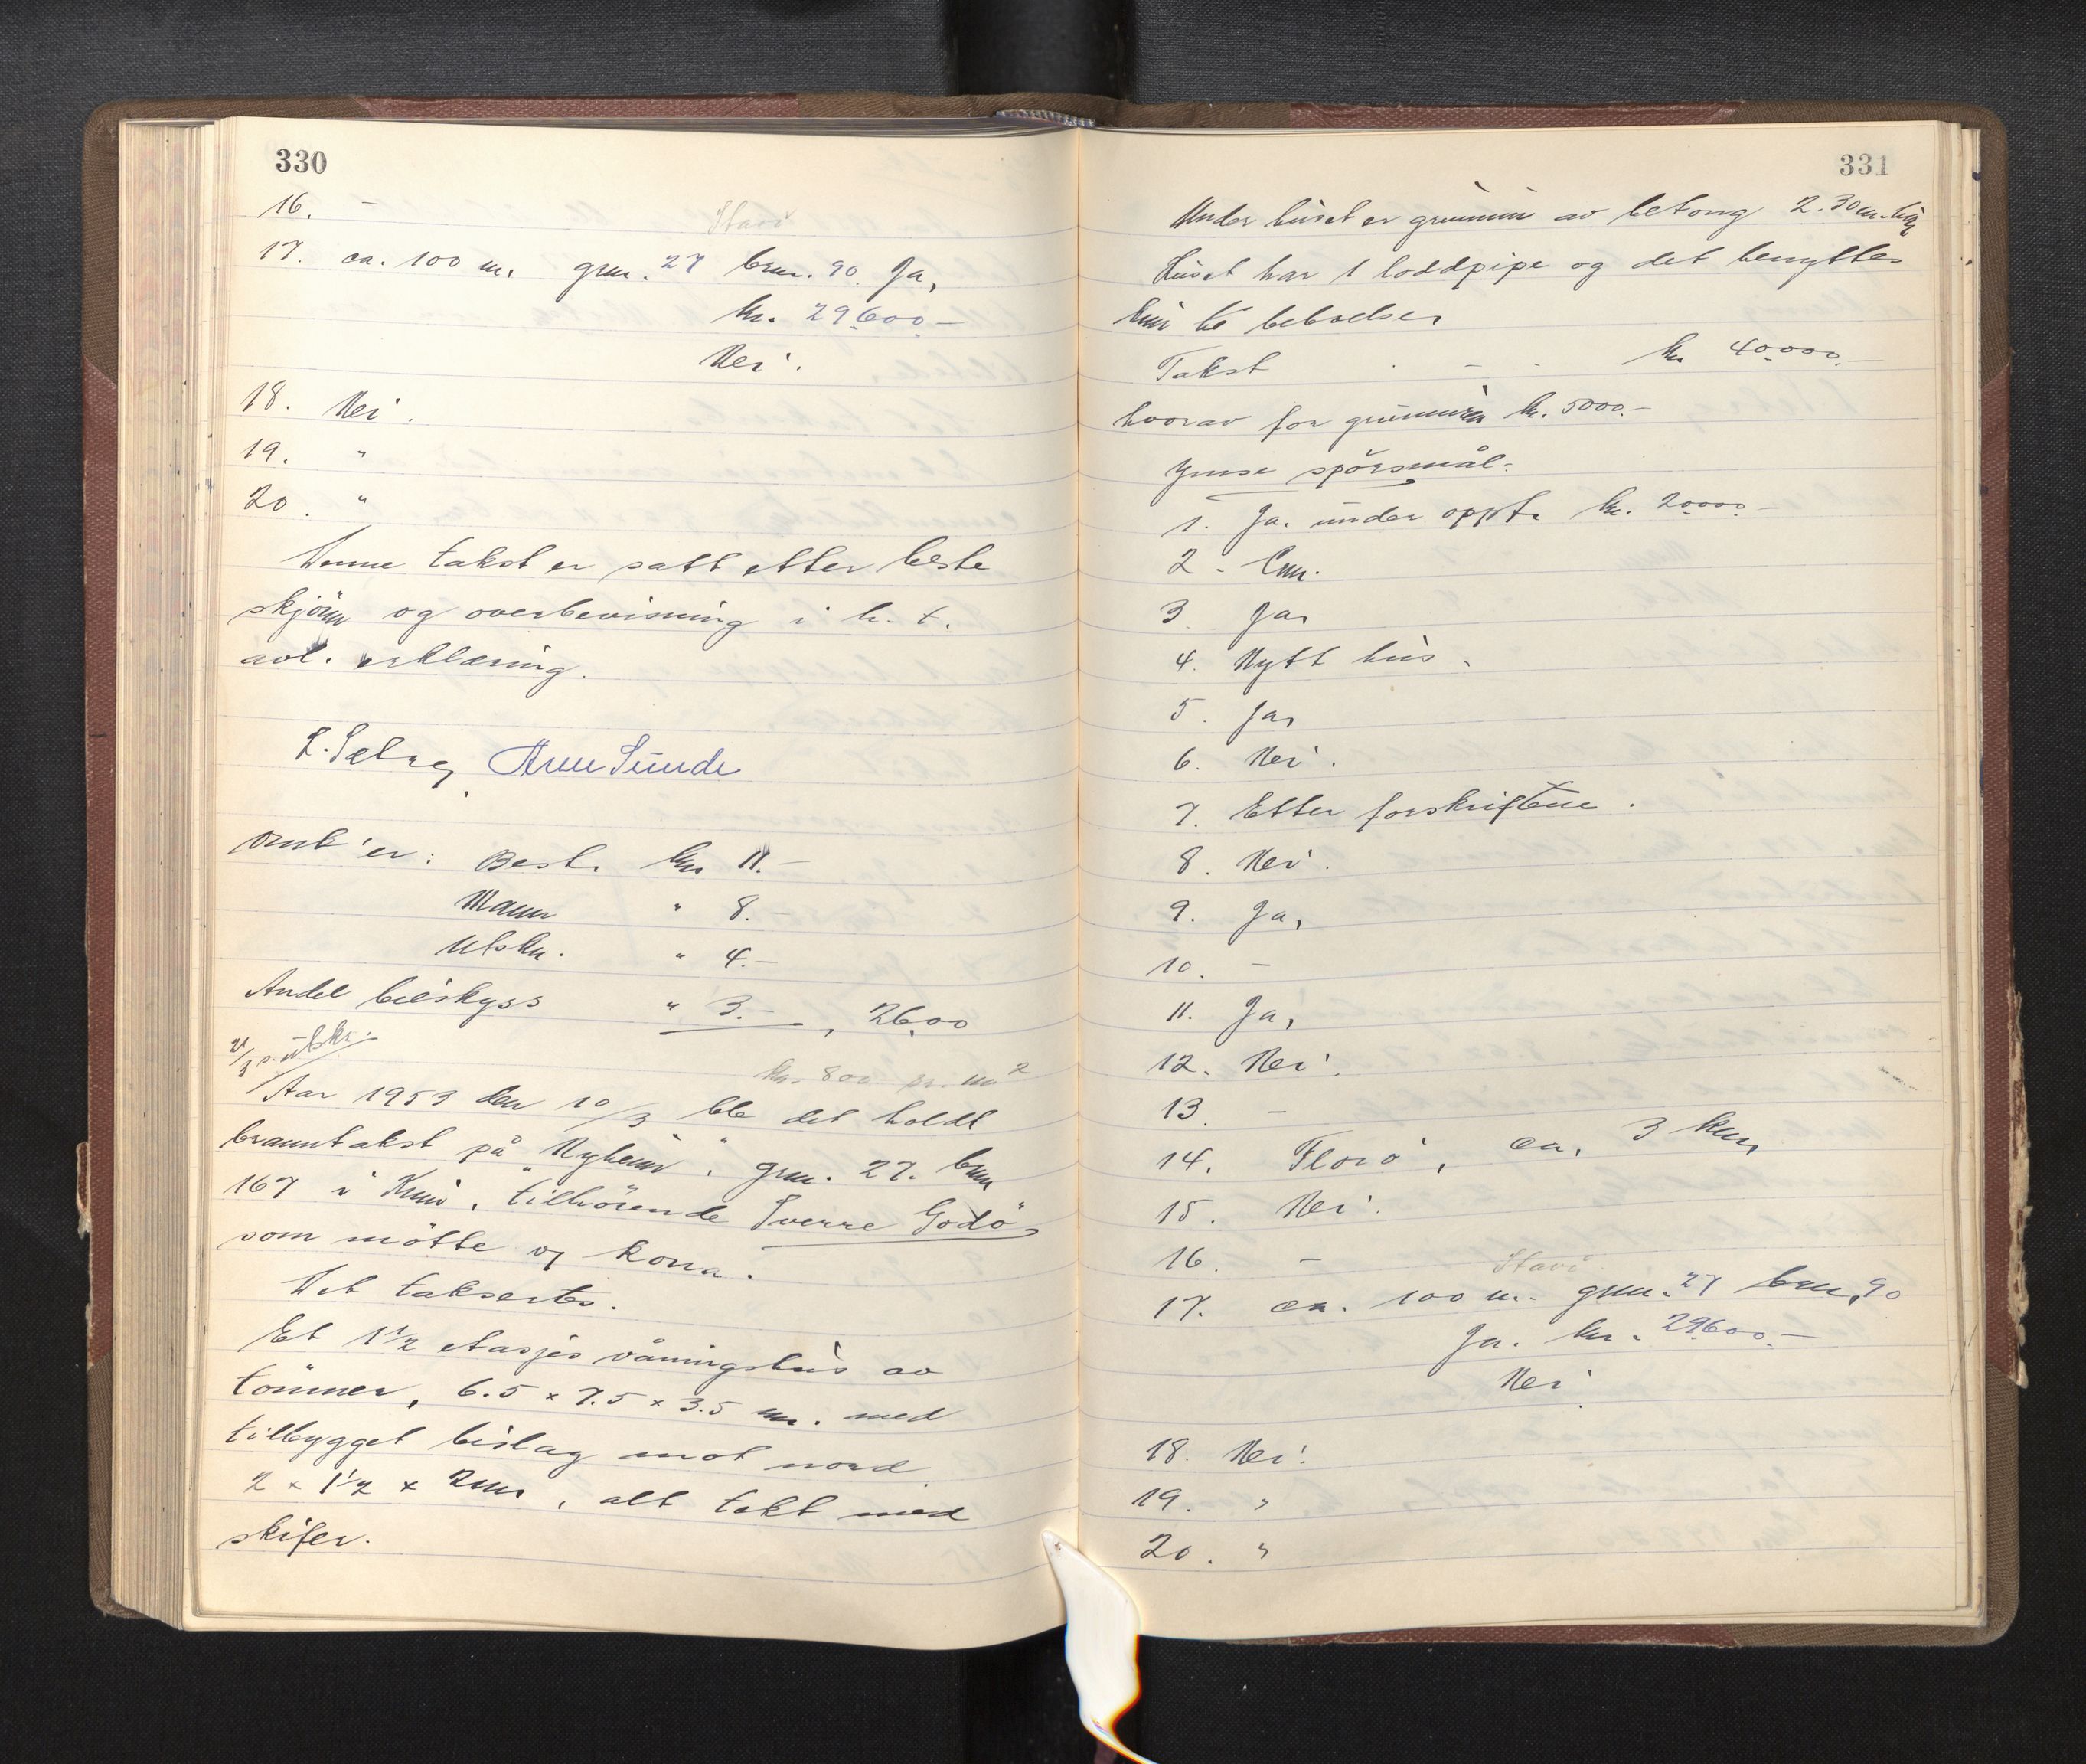 330
16. -
Stavö
17. ca. 100 m. grnr. 27 brnr. 90. Ja,
kr. 29600.-
Nei.
18. Nei.
19. "
20. "
Denne takst er satt etter beste
skjönn og overbevisning i h. t.
avl. erklæring.
Arne Sunde
Omk'er: Best. kr 11.-
Mann " 8.-
Utskr. " 4.-
Andel bilskyss " 3.-, 26.00
21/3 s. utskr.
kr. 800 pr. m2
Aar 1953 den 10/3 ble det holdt
branntakst på "Nyheim", grnr. 27. brnr
167 i Kinn, tilhörende Sverre Godö,
som mötte og kona.
Det takseres.
Et 1 1/2 etasjes våningshus av
tömmer, 6.5 x 7.5 x 3.5 m. med
tilbygget bislag mot nord
2 x 1 1/2 x 2 m, alt tekt med
skifer.
331
Under huset er grunnmur av betong 2.30 m. høg
Huset har 1 loddpipe og det benyttes
kun til beboelse.
Takst - - kr 40.000.-
hvorav for grunnmuren kr. 5000.-
Ymse spörsmål:
1. Ja. under oppf. kr. 20.000.-
2. Enn.
3. Ja,
4. Nytt hus.
5. Ja,
6. Nei.
7. Etter forskriftene.
8. Nei.
9. Ja,
10. -
11. Ja,
12. Nei.
13. -
14. Florö, ca. 3 km,
15. Nei.
16. -
Stavö
17. ca. 100 m. grnr. 27 brnr. 90
Ja. kr. 29600.-
Nei.
18. Nei.
19. "
20. "